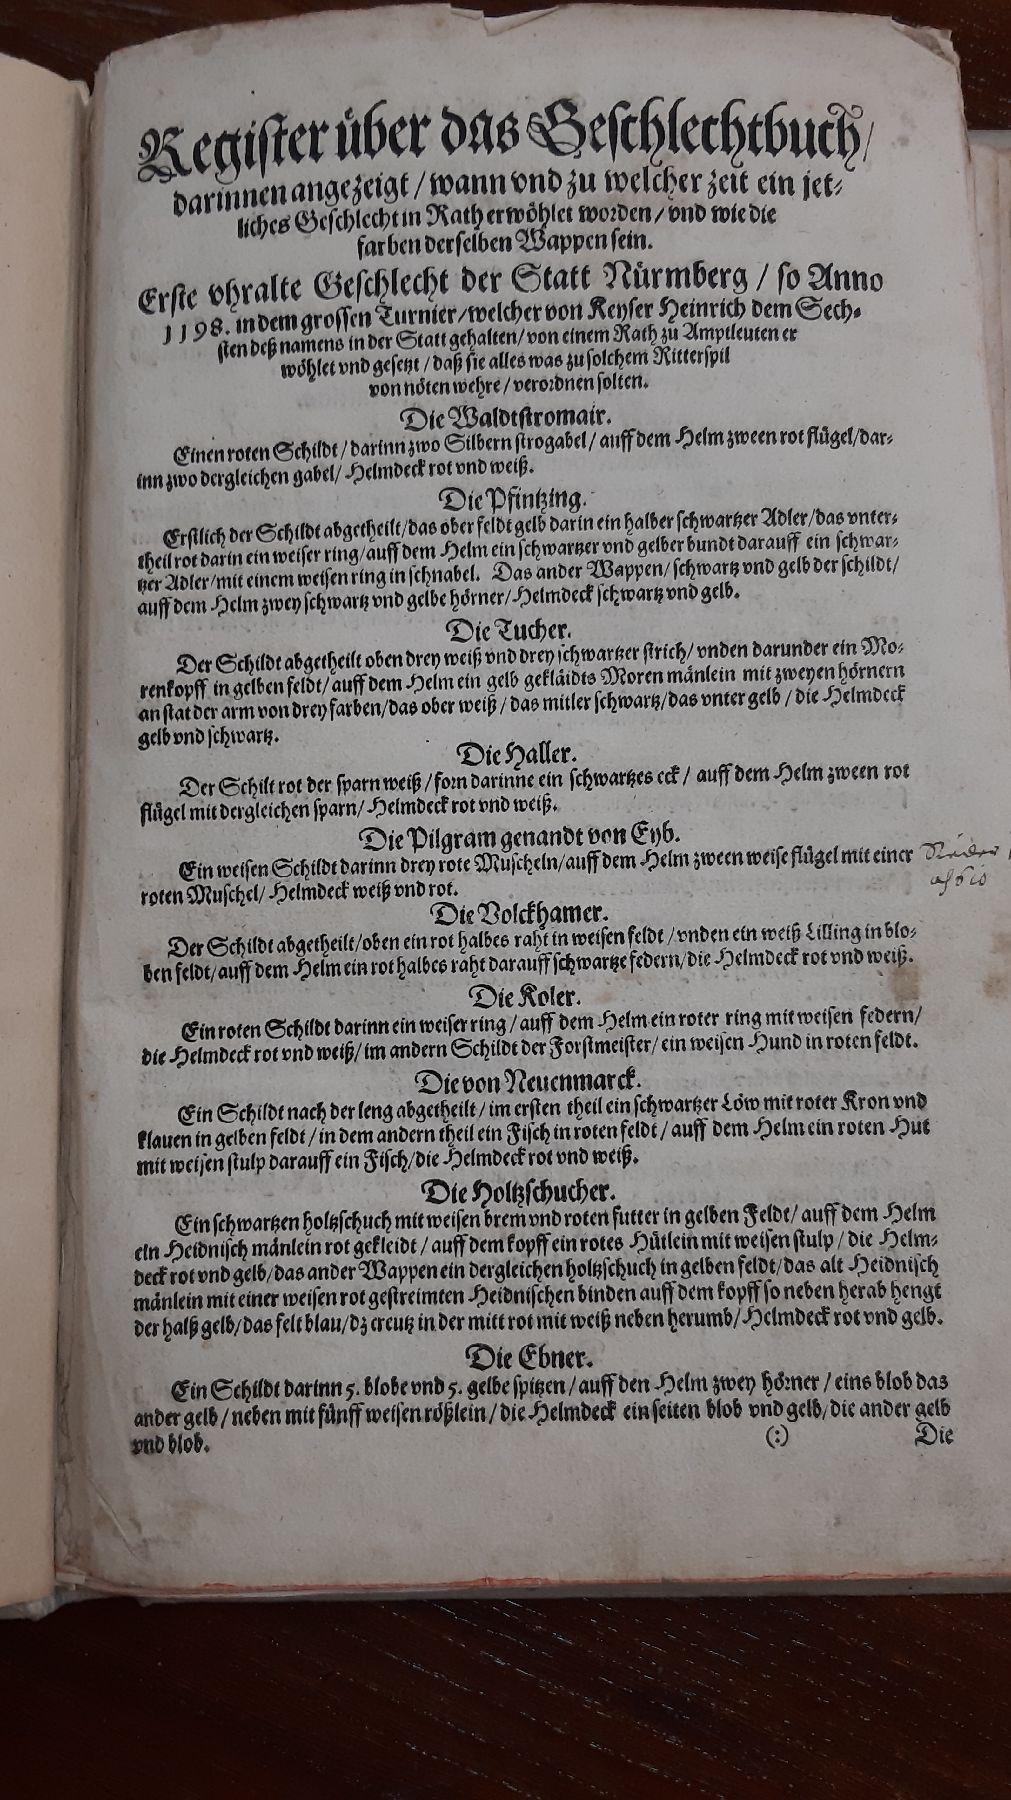 Register über das Geschlechtbuch/
darinnen angezeigt / wann vnd zu welcher zeit ein jet-
liches Geschlecht in Rath erwöhlet worden / vnd wie die
farben derselben Wappen sein.
Erste vhralte Geschlecht der Statt Nürmberg / so Anno
1198. in dem grossen Turnier/welcher von Keyser Heinrich dem Sech-
sten deß namens in der Statt gehalten/ von einem Rath zu Amptleuten er
wöhlet vnd gesetzt / daß sie alles was zu solchem Ritterspil
von nöten wehre / verordnen solten.
Die Waldtstromair.
Einen roten Schildt / darinn zwo Silbern strogabel/ auff dem Helm zween rot flügel/dar-
inn zwo dergleichen gabel/ Helmdeck rot vnd weiß.
Die Pfintzing.
Erstlich der Schildt abgetheilt/das ober feldt gelb darin ein halber schwartzer Adler/das vnter-
theil rot darin ein weiser ring/auff dem Helm ein schwartzer vnd gelber bundt darauff ein schwar-
tzer Adler/mit einem weisen ring in schnabel. Das ander Wappen/ schwartz vnd gelb der schildt/
auff dem Helm zwey schwartz vnd gelbe hörner/ Helmdeck schwartz vnd gelb.
Die Tucher.
Der Schildt abgetheilt oben drey weiß vnd drey schwartzer strich/ vnden darunder ein Mo-
renkopff in gelben feldt/ auff dem Helm ein gelb gekläidts Moren mänlein mit zweyen hörnern
an stat der arm von drey farben/das ober weiß / das mitler schwartz/das vnter gelb / die Helmdeck
gelb vnd schwartz.
Die Haller.
Der Schilt rot der sparn weiß / forn darinne ein schwartzes eck / auff dem Helm zween rot
flügel mit dergleichen sparn/ Helmdeck rot vnd weiß.
Die Pilgram genandt von Eyb.
Ein weisen Schildt darinn drey rote Muscheln/auff dem Helm zween weise flügel mit einer
roten Muschel/ Helmdeck weiß vnd rot.
Die Volckhamer.
Der Schildt abgetheilt/oben ein rot halbes raht in weisen feldt / vnden ein weiß Lilling in blo-
ben feldt/auff dem Helm ein rot halbes raht darauff schwartze federn/die Helmdeck rot vnd weiß.
Die Koler.
Ein roten Schildt darinn ein weiser ring / auff dem Helm ein roter ring mit weisen federn/
die Helmdeck rot vnd weiß/ im andern Schildt der Forstmeister/ ein weisen Hund in roten feldt.
Die von Neuenmarck.
Ein Schildt nach der leng abgetheilt / im ersten theil ein schwartzer Löw mit roter Kron vnd
klauen in gelben feldt / in dem andern theil ein Fisch in roten feldt / auff dem Helm ein roten Hut
mit weisen stulp darauff ein Fisch/die Helmdeck rot vnd weiß.
Die Holtzschucher.
Ein schwartzen holtzschuch mit weisen brem vnd roten futter in gelben Feldt/ auff dem Helm
ein Heidnisch mänlein rot gekleidt / auff dem kopff ein rotes Hütlein mit weisen stulp / die Helm-
deck rot vnd gelb/das ander Wappen ein dergleichen holtzschuch in gelben feldt/das alt Heidnisch
mänlein mit einer weisen rot gestreimten Heidnischen binden auff dem kopff so neben herab hengt
der halß gelb/das felt blau/dz creutz in der mitt rot mit weiß neben herumb/ Helmdeck rot vnd gelb.
Die Ebner.
Ein Schildt darinn 5. blobe vnd 5. gelbe spitzen / auff den Helm zwey hörner / eins blob das
ander gelb / neben mit fünff weisen rößlein / die Helmdeck ein seiten blob vnd gelb/die ander gelb
vnd blob.
(:)
Die